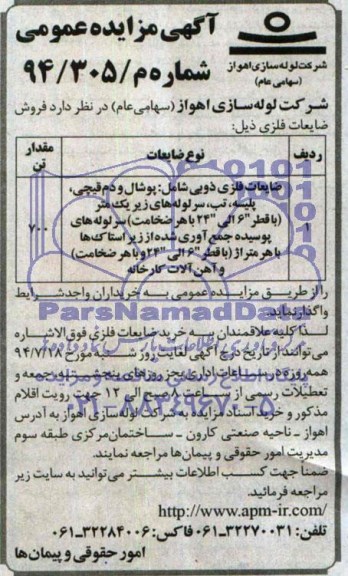 آگهی مزایده عمومی
شماره م/۹۴/۳۰۵
شرکت لوله سازی اهواز
(سهامی عام)
شرکت لوله سازی اهواز (سهامی عام) در نظر دارد فروش
ضایعات فلزی ذیل:
ردیف نوع ضایعات مقدار تن
ضایعات فلزی ذوبی شامل: پوشال و دم قیچی،
پلیسه، تب، سرلوله های زیر یک متر
(با قطر "۶ الی "۲۴ با هر ضخامت) سرلوله های
۱ پوسیده جمع آوری شده از زیر استاک ها ۷۰۰
با هر متراژ (با قطر "۶ الی "۲۴ و با هر ضخامت)
و آهن آلات کارخانه
را از طریق مزایده عمومی به خریداران واجد شرایط
واگذار نماید.
لذا کلیه علاقمندان به خرید ضایعات فلزی فوق الاشاره
می توانند از تاریخ درج آگهی لغایت روز شنبه مورخ ۹۴/۷/۱۸
همه روزه در ساعات اداری بجز روزهای پنجشنبه و جمعه و
تعطیلات رسمی از ساعت ۸ صبح الی ۱۲ جهت رویت اقلام
مذکور و خرید اسناد مزایده به شرکت لوله سازی اهواز به آدرس
اهواز ـ ناحیه صنعتی کارون ـ ساختمان مرکزی طبقه سوم
مدیریت امور حقوقی و پیمان ها مراجعه نمایند.
ضمنا جهت کسب اطلاعات بیشتر می توانید به سایت زیر
مراجعه فرمائید.
http://www.apm-ir.com/
تلفن: ۳۲۲۷۰۰۳۱-۰۶۱ فاکس: ۳۲۲۸۴۰۰۶-۰۶۱
امور حقوقی و پیمان ها
ParsNamadData